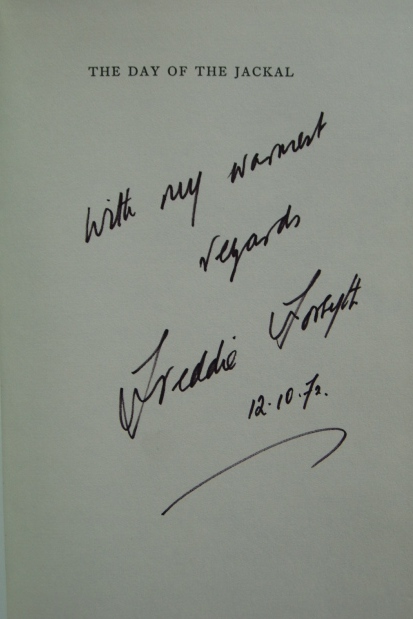 THE DAY OF THE JACKAL
With my warmest
regards
Freddie Forsyth
12.10.72.